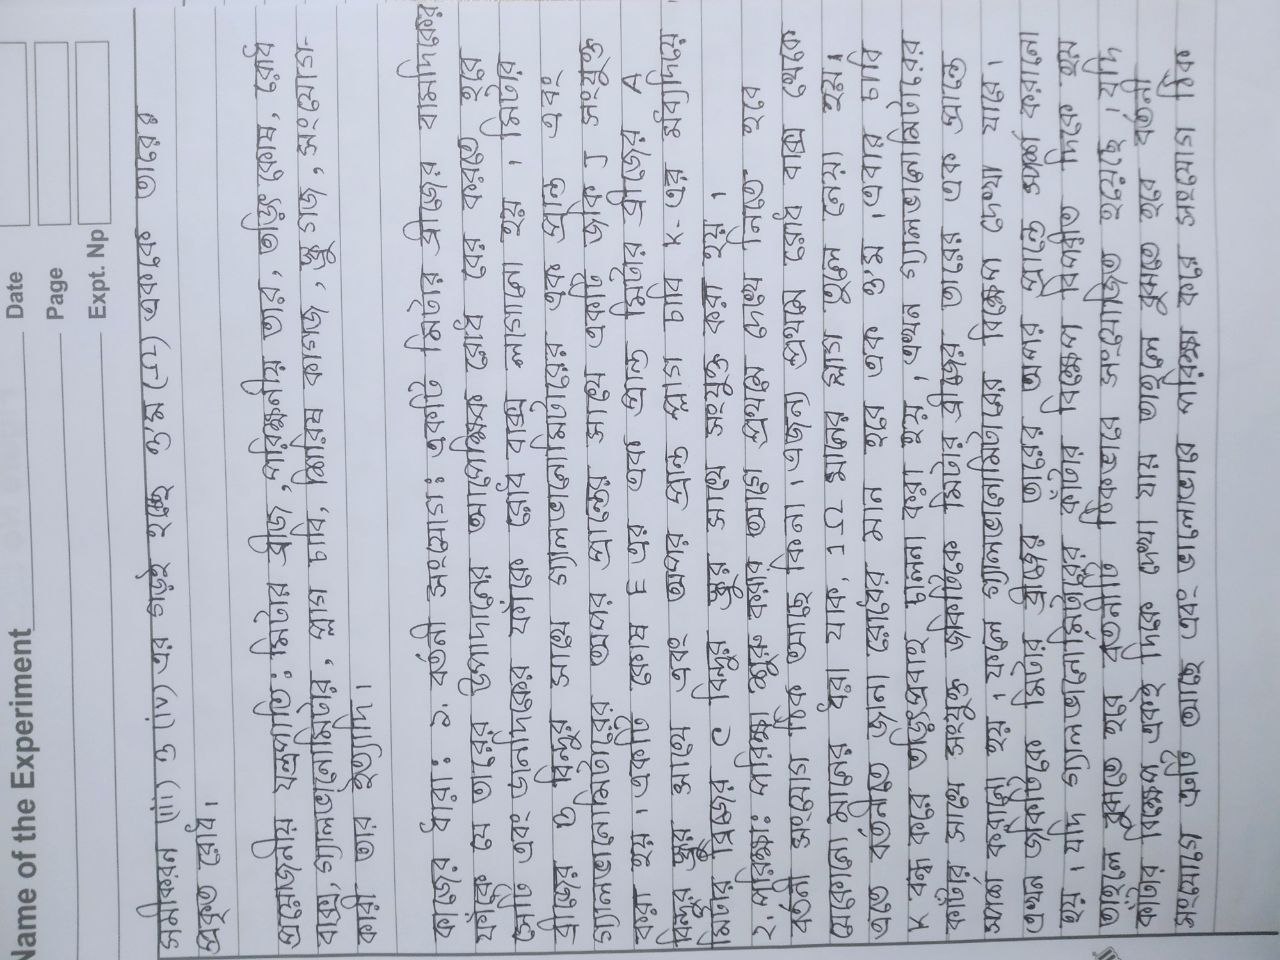 Name of the Experiment
Date
Page
Expt. Np
সমীকরন (iii) ও (iv) এর গড়ই হচ্ছে ১ম (১ম) একক তারের
প্রকৃত রোধ।
প্রয়োজনীয় যন্ত্রপাতি: মিটার ব্রীজ, পরিক্ষনীয় তার, তড়িৎ কোষ, রোধ
বাক্স, গ্যালভানোমিটার, প্লাগ চাবি, শিরিষ কাগজ, স্ক্রু গজ, সংযোজ-
কারী তার ইত্যাদি।
কাজের ধারা: ১. বর্তনী সংযোগ: একটি মিটার ব্রীজের বামদিকের
ফাঁকে যে তারের উপাদানের আপেক্ষিক রোধ বের করতে হবে
সেটি এবং ডানদিকের ফাঁকে রোধ বাক্স লাগানো হয়। মিটার
ব্রীজের D বিন্দুর সাথে গ্যালভানোমিটারের এক প্রান্ত এবং
গ্যালভানোমিটারের অপর প্রান্তের সাথে একটি জকি J সংযুক্ত
করা হয়। একটি কোষ E এর এক প্রান্ত মিটার ব্রীজের A
বিন্দুর স্ক্রুর সাথে এবং অপর প্রান্ত প্লাগ চাবি K-এর মধ্যদিয়ে
মিটার ব্রিজের C বিন্দুর স্ক্রুর সাথে সংযুক্ত করা হয়।
২. পরিক্ষা: পরিক্ষা শুরু করার আগে প্রথমে দেখে নিতে হবে
বর্তনী সংযোগ ঠিক আছে কিনা। এজন্য প্রথমে রোধ বাক্স থেকে
যেকোনো মানের ধরা যাক, 1Ω মানের প্লাগ তুলে নেয়া হয়।
এতে বর্তনীতে জানা রোধের মান হবে এক ও'ম। এবার চাবি
K বন্ধ করে তড়িৎপ্রবাহ চালনা করা হয়, এখন গ্যালভানোমিটারের
কাঁটার সাথে সংযুক্ত জকিটিকে মিটার ব্রীজের তারের এক প্রান্তে
স্পর্শ করানো হয়। ফলে গ্যালভানোমিটারের বিক্ষেপ দেখা যায়।
এখন জকিটিকে মিটার ব্রীজের তারের অপর প্রান্তে স্পর্শ করানো
হয়। যদি গ্যালভানোমিটারের কাঁটার বিক্ষেপ বিপরীত দিকে হয়
তাহলে বুঝতে হবে বর্তনীটি ঠিকভাবে সংযোজিত হয়েছে। যদি
কাঁটার বিক্ষেপ একই দিকে দেখা যায় তাহলে বুঝতে হবে বর্তনী
সংযোগে ত্রুটি আছে এবং ভালোভাবে পরিক্ষা করে সংযোগ ঠিক